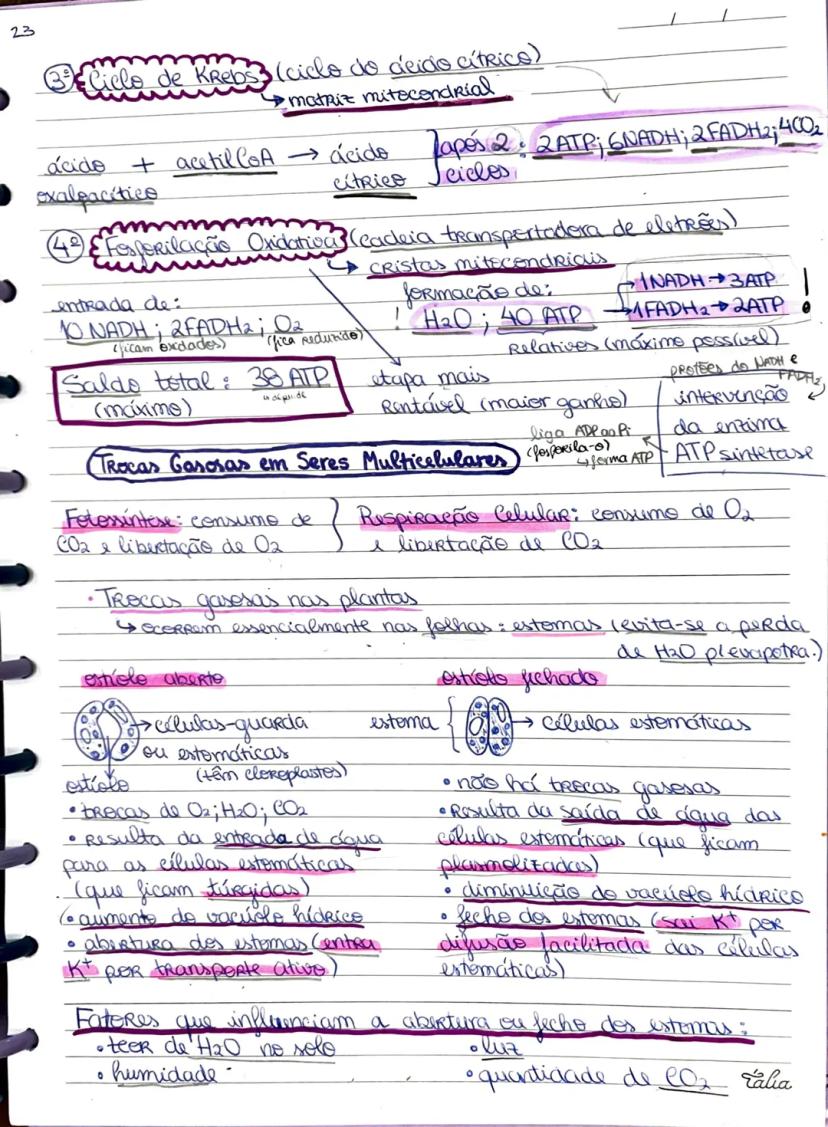 23
3º Ciclo de Krebs (ciclo do ácido cítrico)
↳ matriz mitocondrial
ácido + acetilCoA → ácido
oxaloacítico cítrico
após 2 ciclos: 2ATP; 6NADH; 2FADH2; 4CO2
4º Fosforilação Oxidativa (cadeia transportadora de eletrões)
↳ cristas mitocondriais
entrada de:
10 NADH; 2FADH2; O2
(ficam oxidados) (fica reduzido)
formação de:
! H2O; 40 ATP
→ 1NADH → 3ATP
→ 1FADH2 → 2ATP !
Relativos (máximo possível)
Saldo total: 38 ATP
(máximo)
etapa mais
Rentável (maior ganho)
protões do NADH e
FADH2
intervenção
da enzima
ATP sintetase
liga ADP ao Pi
(fosforila-o)
↳ forma ATP
Trocas Gasosas em Seres Multicelulares
Fotossíntese: consumo de
CO2 e libertação de O2
Respiração Celular: consumo de O2
e libertação de CO2
• Trocas gasosas nas plantas
↳ ocorrem essencialmente nas folhas: estomas (evita-se a perda
de H2O p/evapotra.)
ostíolo aberto
→ células-guarda
ou estomáticas
(têm cloroplastos)
ostíolo
• trocas de O2; H2O; CO2
• Resulta da entrada de água
para as células estomáticas
(que ficam túrgidas)
• aumento do vacúolo hídrico
• abertura dos estomas (entra
K+ por transporte ativo)
ostíolo fechado
estoma { → células estomáticas
• não há trocas gasosas
• Resulta da saída de água das
células estomáticas (que ficam
plasmolizadas)
• diminuição do vacúolo hídrico
• fecho dos estomas (sai K+ por
difusão facilitada das células
estomáticas)
Fatores que influenciam a abertura ou fecho dos estomas:
• teor de H2O no solo
• humidade
• luz
• quantidade de CO2
Tália